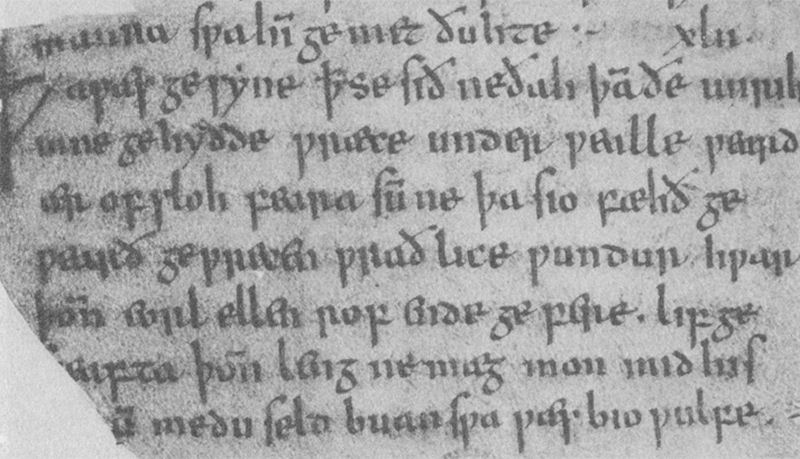 manna sƿa hī gemet ðuhte :~ xlii.
Þa ƿæs gesyne ꝥ se sið ne ðah þā ðe unriht
inne gehydde ƿræce under ƿealle ƿeard
ær ofsloh feara sūne þa sio fæhð ge
ƿearð geƿrecen ƿraðlice ƿundur hƿar
þoñ eorl ellen rof ende ge fere. lif ge
eafta þoñ leng ne mæg mon mid his
ū medu seld buan sƿa ƿæs bio ƿulfe.